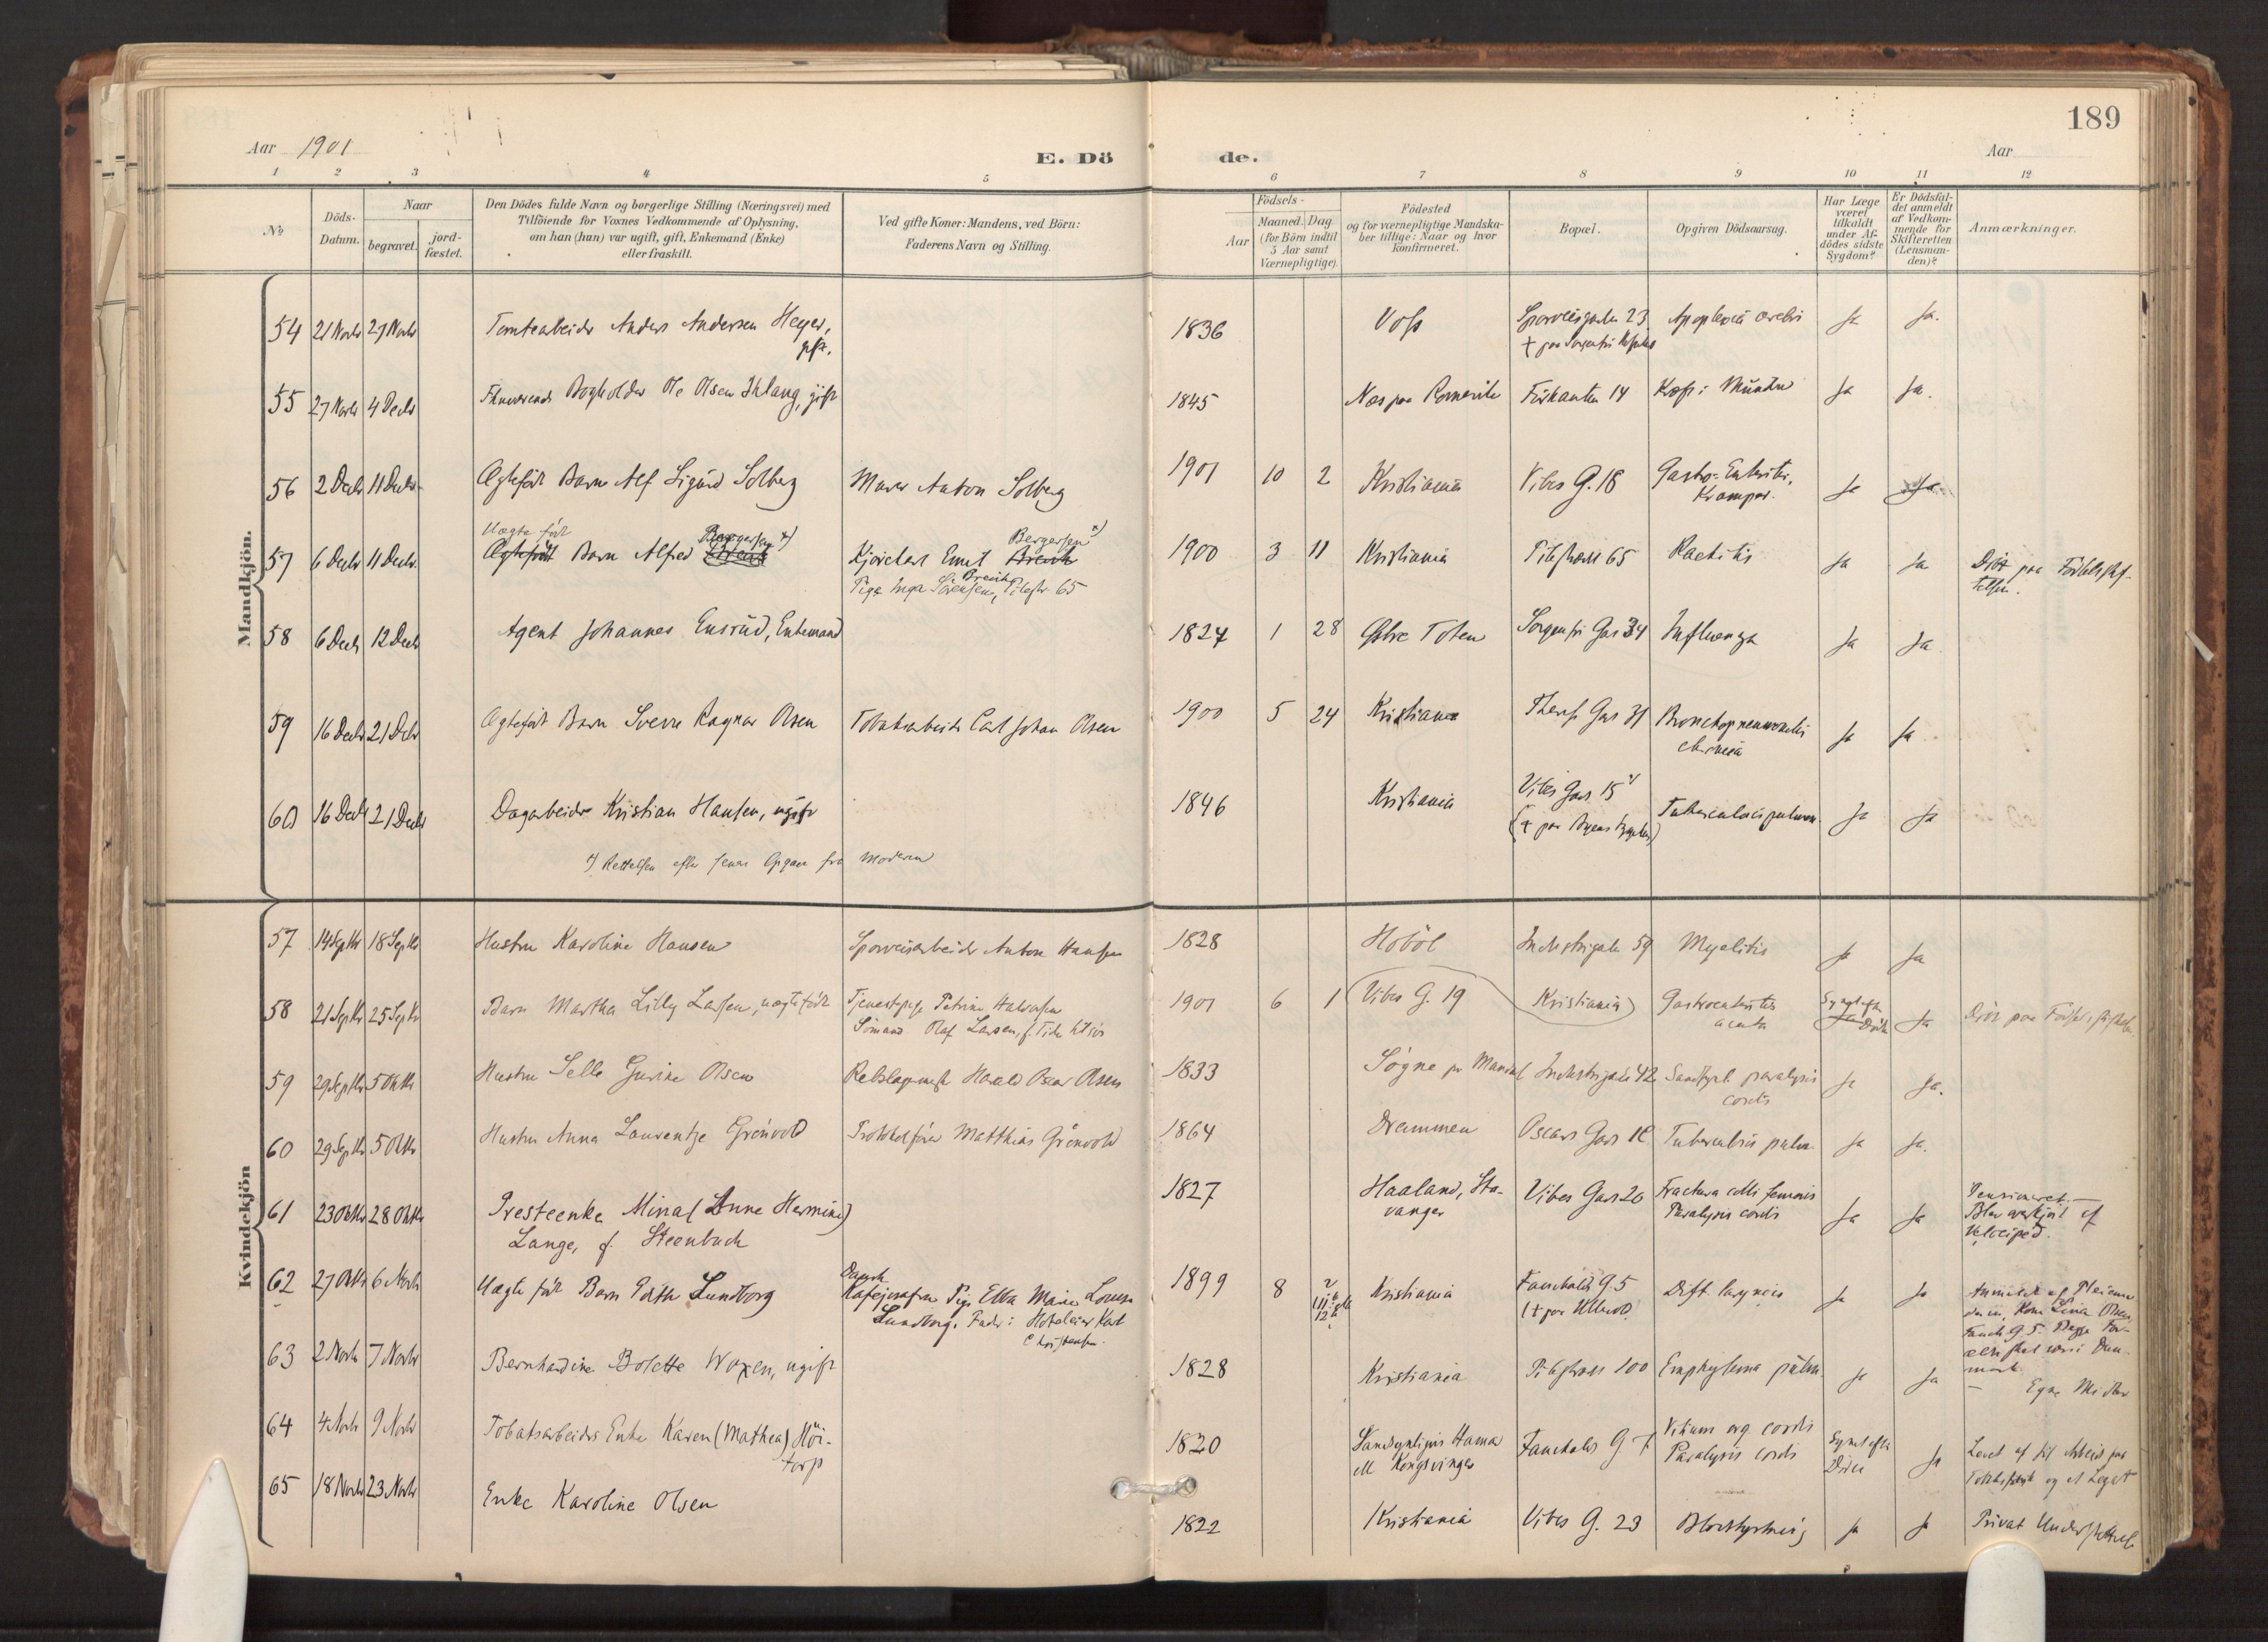 189
Aar 1901
E. Dö de.
Aar
1 2 3 4 5 6 7 8 9 10 11 12
No
Döds-Datum.
Naar
begravet.
jord-fæstet.
Den Dödes fulde Navn og borgerlige Stilling (Næringsvei) med
Tilföiende for Voxnes Vedkommende af Oplysning,
om han (hun) var ugift, gift, Enkemand (Enke)
eller fraskilt.
Ved gifte Koner: Mandens, ved Börn:
Faderens Navn og Stilling.
Födsels-
Aar
Maaned. Dag
(for Börn indtil
5 Aar samt
Værnepligtige).
Födested
og for værnepligtige Mandska-
ber tillige: Naar og hvor
konfirmeret.
Bopæl.
Opgiven Dödsaarsag.
Har Læge
været
tilkaldt
under Af-
dödes sidste
Sygdom?
Er Dödsfal-
det anmeldt
af Vedkom-
mende for
Skifteretten
(Lensman-
den)?
Anmærkninger.
Mandkjön.
54 21 Novbr 27 Novbr Tomtearbeider Anders Andersen Heyer, 1836 Voss Sporveisgaden 23 Apoplexia cerebri Ja Ja.
gift.
55 27 Novbr 4 Decbr Bogholder Ole Olsen gift 1845 Næs paa Romerike Firkanten 14 Kræft i Ja Ja.
56 2 Decbr 11 Decbr Ægtefödt Barn Alf Sigurd Solberg Murer Anton Solberg 1901 10 2 Kristiania Vibes G. 18 Gastro-Enteritis, Ja Ja
Kramper.
Uægte födt Bergersen x) Bergersen x)
57 6 Decbr 11 Decbr Ægtefödt Barn Alfred Brevik Ernst Brevik 1900 3 11 Kristiania Pilestræde 65 Rachitis Ja Ja Död paa Födselsstif-
telsen.
Pige Inga Sörensen, Brevik Pilestr. 65
58 6 Decbr 12 Decbr Agent Johannes Ensrud, Enkemand 1824 1 28 Østre Toten Sorgenfri Gade 34 Influenza Ja Ja
59 16 Decbr 21 Decbr Ægtefödt Barn Sverre Ragnar Olsen Tobaksarbeider Carl Johan Olsen 1900 5 24 Kristiania Theres Gade 31 Bronchopneumonia Ja Ja
60 16 Decbr 21 Decbr Dagarbeider Kristian Hansen, ugift 1846 Kristiania Vibes Gade 15 Tuberculosis pulmon. Ja Ja
(+ paa Byens Sygehus)
x) Rettelsen efter senere Opgave fra Moderen
Kvindekjön
57 14 Septbr 18 Septbr Hustru Karoline Hansen Sporveisarbeider Anton Hansen 1828 Hobøl Industrigade 59 Myelitis Ja Ja
58 21 Septbr 25 Septbr Barn Martha Lilly Larsen, uægtefödt Tjenestepige Petrine Halvorsen 1901 6 1 Vibes G. 19 Kristiania Gastroenteritis Synet efter Ja Död paa Födselsstiftelsen
Sömand Olaf Larsen, acuta Ja Döden
59 29 Septbr 5 Oktbr Hustru Selle Gurine Olsen Rebslagermester Harald Oscar Olsen 1833 Søgne pr Mandal Industrigade 42 Sandsynl. paralysis Ja Ja.
cordis
60 29 Septbr 5 Oktbr Hustru Anna Laurentze Grönvold Protokolförer Matthias Grönvold 1864 Drammen Oscars Gade 18 Tuberculosis pulm. Ja Ja.
61 23 Oktbr 28 Oktbr Presteenke Mina (Anne Hermine) 1827 Haaland, Sta- Vibes Gade 20 Fractura colli femoris Ja Ja Pensioneret.
Lange, f. Steenbuch vanger Paralysis cordis Blev overkjört af
Velociped.
62 27 Oktbr 6 Novbr Uægte födt Barn Edith Lundborg Dansk 1899 8 Kristiania Fauchalds G. 5 Dift. laryncis Ja Ja Anmeldt af Pleiemo-
Pige Ella Marie Louise (+ paa Ullevold)
deren, Kone Lina Olsen,
Lundborg. Fader: Hoteleier Karl
Fauch. G. 5.
Christensen.
mark.
63 2 Novbr 7 Novbr Bernhardine Bolette Woxen, ugift 1828 Kristiania Pilestræde 100 Emphysema pulm. Ja Ja Egne Midler
64 4 Novbr 9 Novbr Tobaksarbeiders Enke Karen (Mathea) Höi- 1820 Sandsynligvis Hamar Fauchalds G. 7 Vitium org. cordis Synet efter Ja Levet af sit Arbeid paa
torp ell Kongsvinger Paralysis cordis Döden Tobaksfabrik og et Legat
65 18 Novbr 23 Novbr Enke Karoline Olsen 1822 Kristiania Vibes G. 23 Blodstyrtning Ja Ja Privat Understöttelse